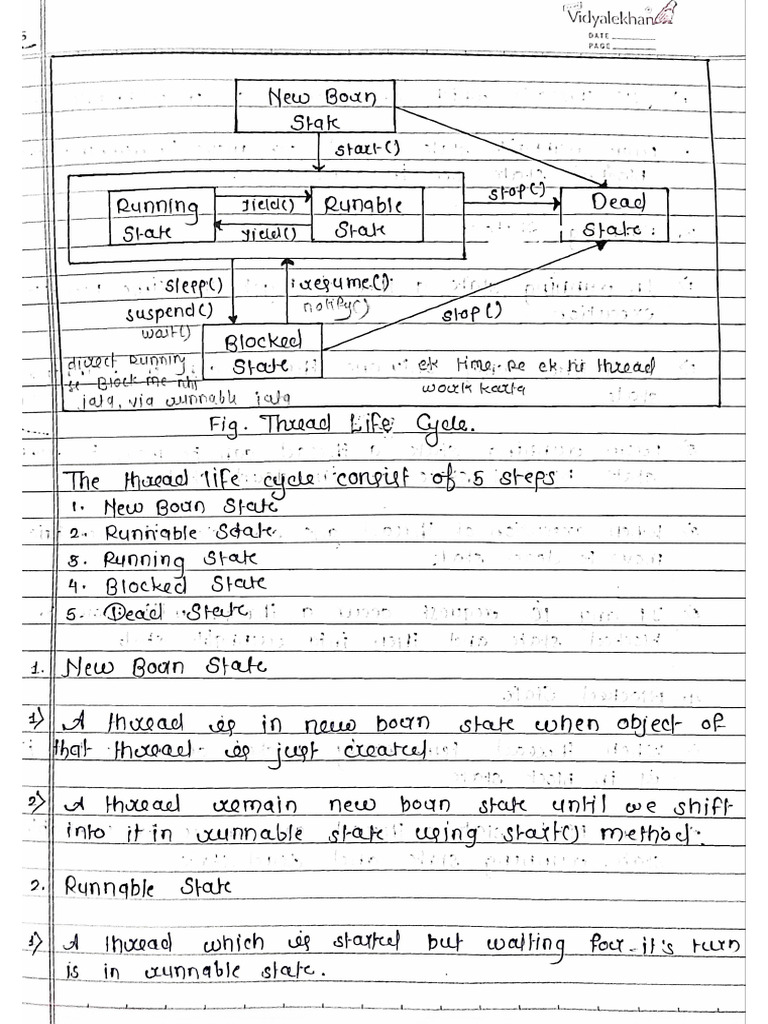 Vidyalekhan
DATE
PAGE
New Born
State
start()
Running
State
yield()
yield()
Runable
State
stop()
Dead
State
sleep()
suspend()
wait()
resume()
notify()
stop()
Blocked
State
direct Running
se Block me nhi
jata, via runnable jata
ek time pe ek hi thread
work karta
Fig. Thread Life Cycle.
The thread life cycle consist of 5 steps :
1. New Born State
2. Runnable State
3. Running State
4. Blocked State
5. Dead State
1. New Born State
1) A thread is in new born state when object of
that thread is just created
2) A thread remain new born state until we shift
into it in runnable state using start() method.
2. Runnable State
1) A thread which is started but waiting for it's turn
is in runnable state.